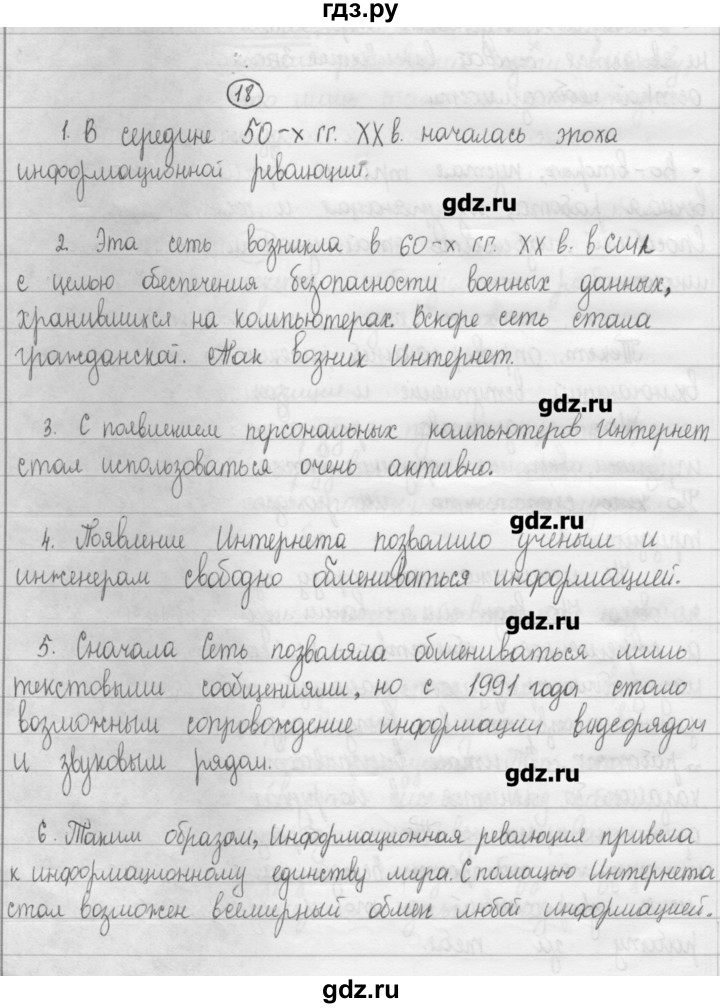 гдз.ру
18
1. В середине 50-х гг. XX в. началась эпоха
информационной революции.
gdz.ru
2. Эта сеть возникла в 60-х гг. XX в. в США
с целью обеспечения безопасности военных данных,
хранившихся на компьютерах. Вскоре сеть стала
гражданской. Так возник Интернет.
gdz.ru
3. С появлением персональных компьютеров Интернет
стал использоваться очень активно.
gdz.ru
4. Появление Интернета позволило ученым и
инженерам свободно обмениваться информацией.
gdz.ru
5. Сначала Сеть позволяла обмениваться лишь
текстовыми сообщениями, но с 1991 года стало
возможным сопровождение информации видеорядом
и звуковым рядом.
gdz.ru
6. Таким образом, Информационная революция привела
к информационному единству мира. С помощью Интернета
стал возможен всемирный обмен любой информацией.
gdz.ru